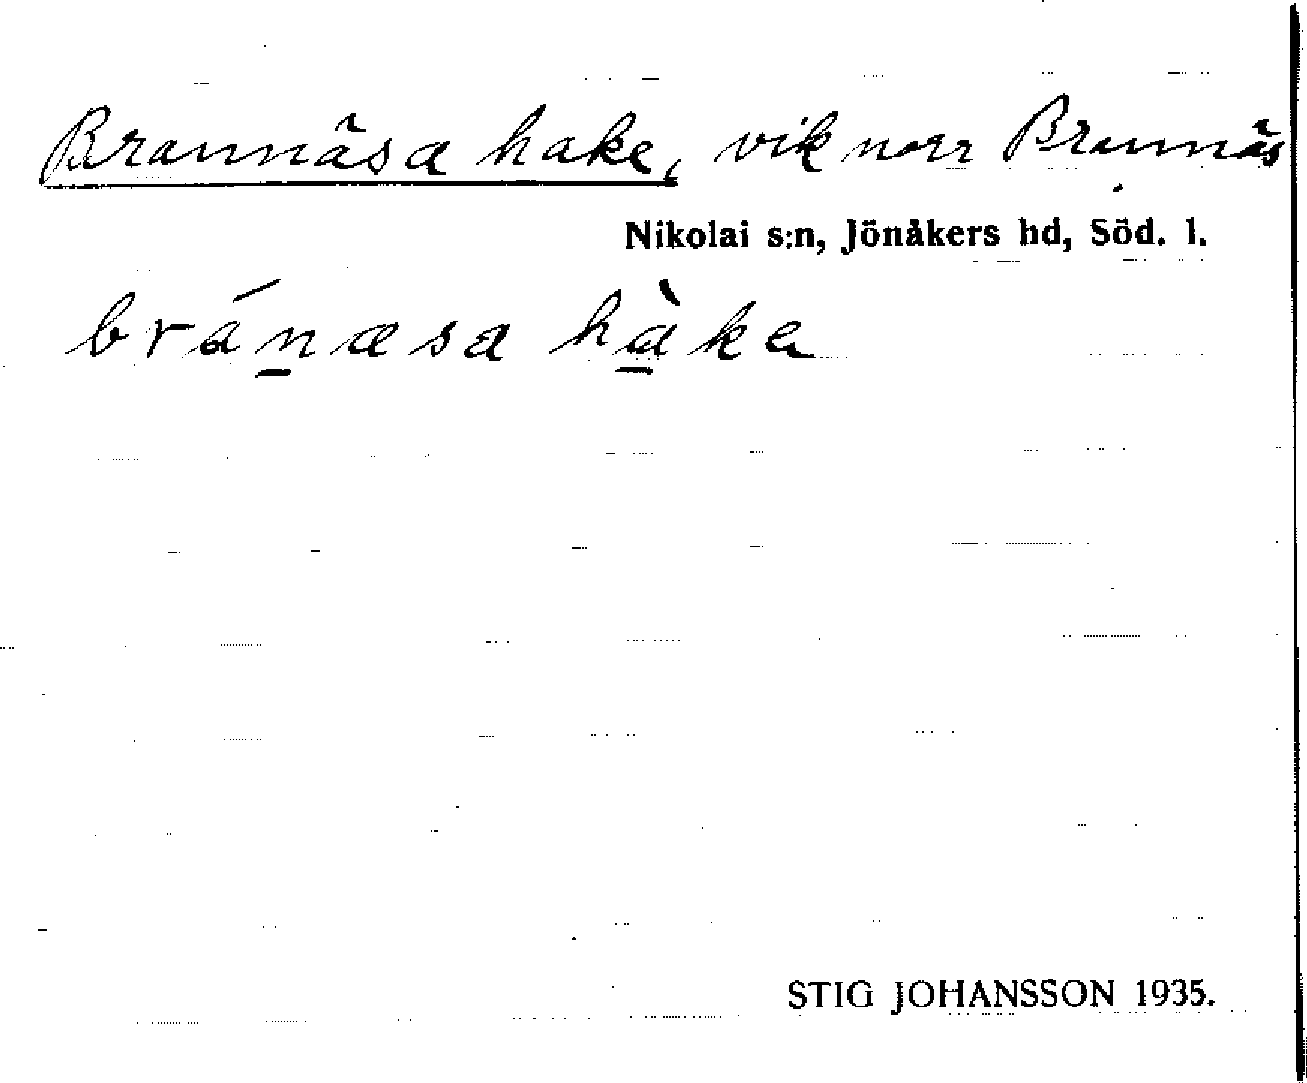 Brannäsa hake, vik norr Brannäs
Nikolai s:n, Jönåkers hd, Söd. l.
bránæsa hàka
STIG JOHANSSON 1935.